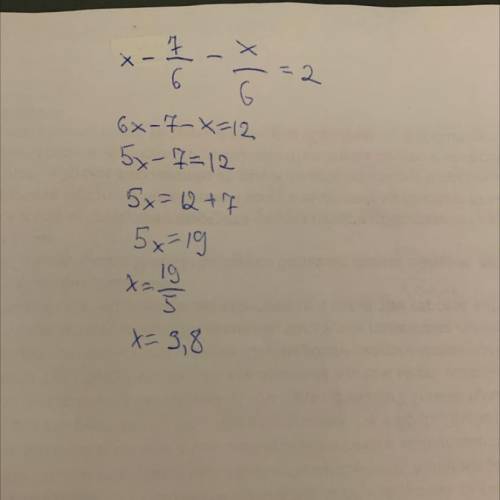 x - 7/6 - x/6 = 2
6x-7-x=12
5x-7=12
5x=12+7
5x=19
x=19/5
x=3,8